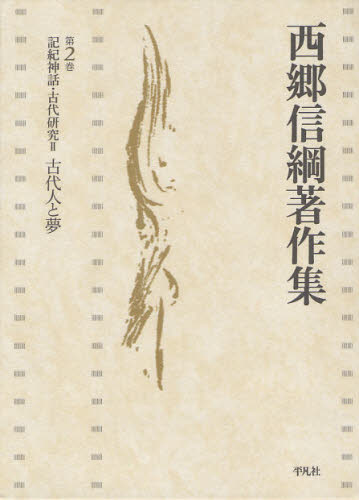 西郷信綱著作集
第2巻
記紀神話・古代研究Ⅱ 古代人と夢
平凡社